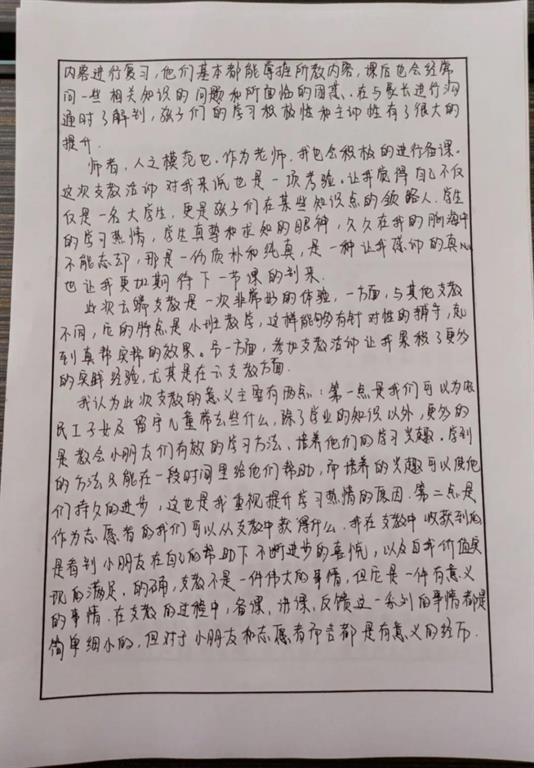 内容进行复习，他们基本都能掌握所教内容，课后也会经常
问一些相关知识的问题和所面临的困惑。在与家长进行沟
通时了解到，孩子们的学习积极性和主动性有了很大的
提升。
师者，人之模范也。作为老师，我也会积极的进行备课。
这次支教活动对我来说也是一项考验。让我觉得自己不仅
仅是一名大学生，更是孩子们在某些知识点的领路人。学生
的学习热情，学生真挚和求知的眼神，久久在我的脑海中
不能忘却，那是一份质朴和纯真，是一种让我感动的真
也让我更加期待下一节课的到来。
此次云端支教是一次非常好的体验，一方面，与其他支教
不同，它的特点是小班教学，这样能够有针对性的辅导，起
到真帮实帮的效果。另一方面，参加支教活动让我累积了更多
的实践经验，尤其是在云支教方面。
我认为此次支教的意义主要有两点：第一点是我们可以为农
民工子女及留守儿童带去些什么，除了学业的知识以外，更多的
是教会小朋友们有效的学习方法、培养他们的学习兴趣。学到
的方法只能在一段时间里给他们帮助，而培养的兴趣可以使他
们持久的进步，这也是我重视提升学习热情的原因。第二点是
作为志愿者的我们可以从支教中获得什么，我在支教中收获到的
是看到小朋友在自己的帮助下不断进步的喜悦，以及自我价值实
现的满足。的确，支教不是一件伟大的事情，但它是一件有意义
的事情。在支教的过程中，备课、讲课、反馈这一系列的事情都是
简单细小的，但对于小朋友和志愿者而言都是有意义的经历。